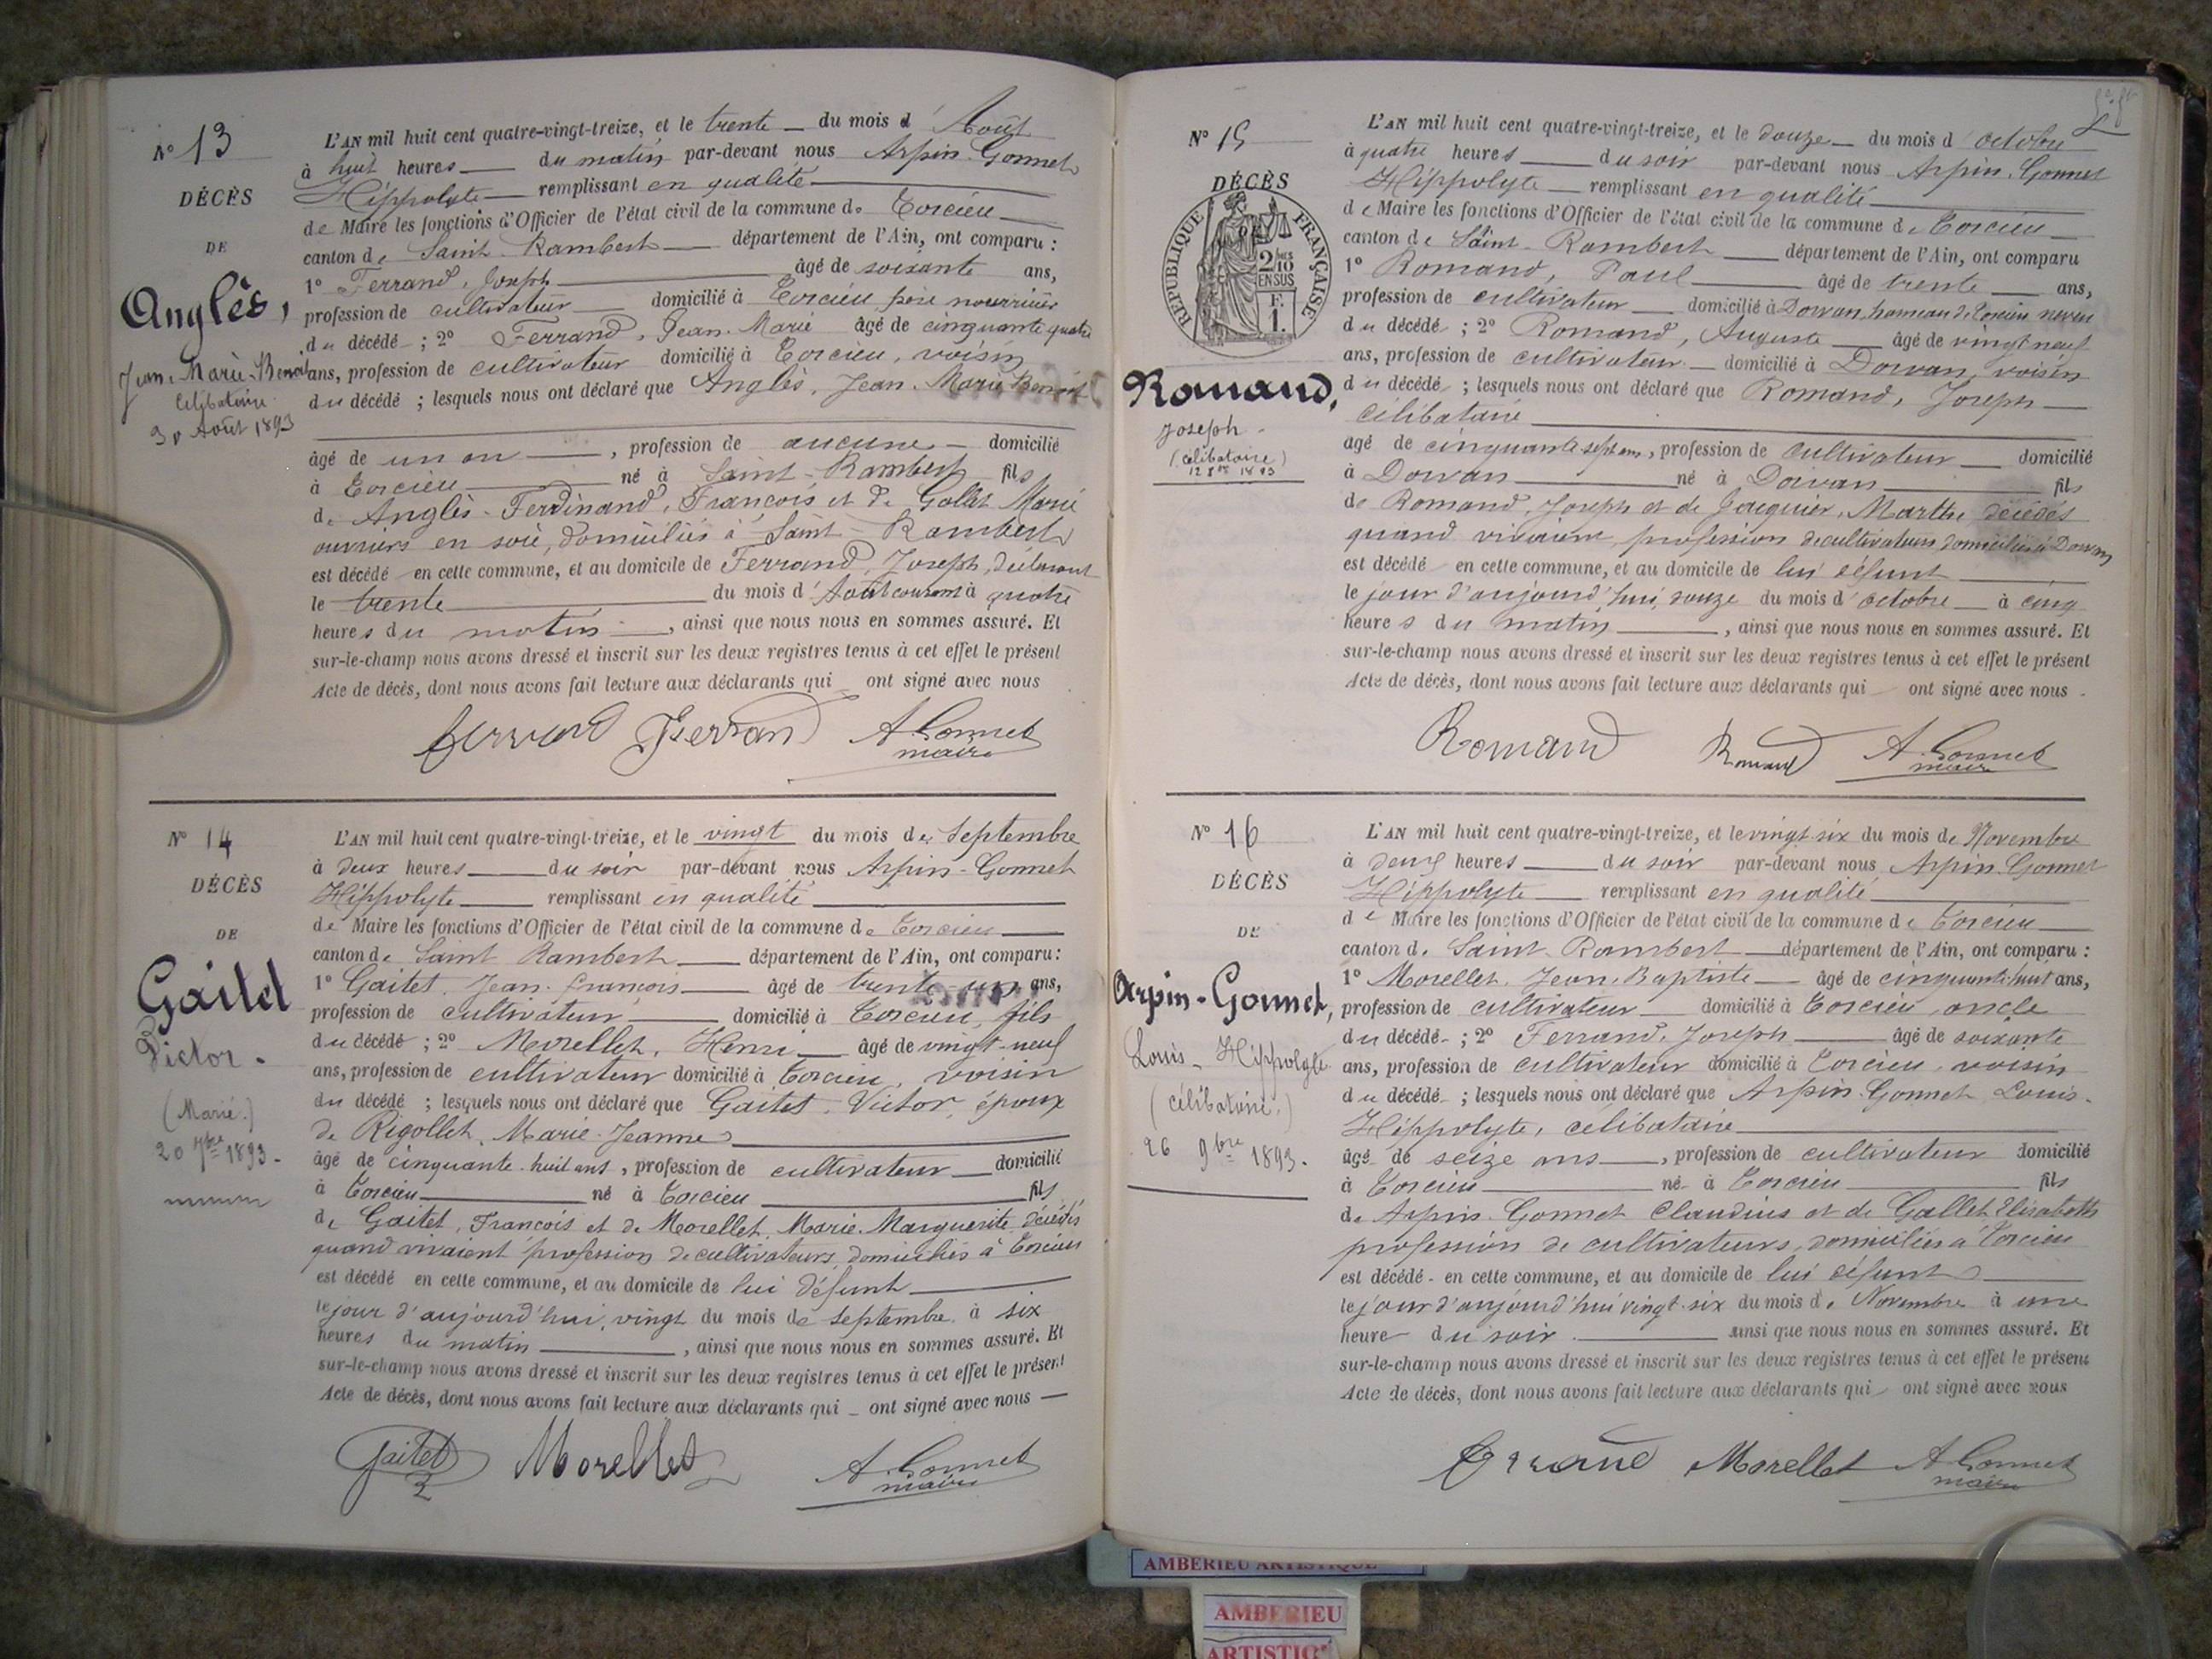 N° 13
DÉCÈS
DE
Anglès,
Jean-Marie-Benoit
célibataire
30 Août 1893
L'AN mil huit cent quatre-vingt-treize, et le trente du mois d'Août
à huit heures du matin par-devant nous Arpin-Gonnet
Hippolyte remplissant en qualité
de Maire les fonctions d'Officier de l'état civil de la commune de Torcieu
canton de Saint-Rambert département de l'Ain, ont comparu :
1° Ferrand, Joseph âgé de soixante ans,
profession de cultivateur domicilié à Torcieu père nourricier
du décédé ; 2° Ferrand, Jean-Marie âgé de cinquante quatre
ans, profession de cultivateur domicilié à Torcieu, voisin
du décédé ; lesquels nous ont déclaré que Anglès, Jean-Marie Benoit
âgé de un an, profession de aucune domicilié
à Torcieu né à Saint-Rambert fils
de Anglès-Ferdinand, François et de Gallet Marie
ouvriers en soie, domiciliés à Saint-Rambert
est décédé en cette commune, et au domicile de Ferrand, Joseph, déclarant
le trente du mois d'Août courant à quatre
heures du matin, ainsi que nous nous en sommes assuré. Et
sur-le-champ nous avons dressé et inscrit sur les deux registres tenus à cet effet le présent
Acte de décès, dont nous avons fait lecture aux déclarants qui ont signé avec nous
Ferrand Ferrand A. Gonnet
maire
N° 14
DÉCÈS
DE
Gaitet
Victor.
(Marié.)
20 7bre 1893.
L'AN mil huit cent quatre-vingt-treize, et le vingt du mois de Septembre
à deux heures du soir par-devant nous Arpin-Gonnet
Hippolyte remplissant en qualité
de Maire les fonctions d'Officier de l'état civil de la commune de Torcieu
canton de Saint Rambert département de l'Ain, ont comparu :
1° Gaitet, Jean-François âgé de trente un ans,
profession de cultivateur domicilié à Torcieu, fils
du décédé ; 2° Morellet, Henri âgé de vingt-neuf
ans, profession de cultivateur domicilié à Torcieu, voisin
du décédé ; lesquels nous ont déclaré que Gaitet, Victor, époux
de Rigollet, Marie-Jeanne
âgé de cinquante-huit ans, profession de cultivateur domicilié
à Torcieu né à Torcieu fils
de Gaitet, François et de Morellet, Marie-Marguerite, décédés
quand vivaient profession de cultivateurs domiciliés à Torcieu
est décédé en cette commune, et au domicile de lui défunt
le jour d'aujourd'hui, vingt du mois de septembre à six
heures du matin, ainsi que nous nous en sommes assuré. Et
sur-le-champ nous avons dressé et inscrit sur les deux registres tenus à cet effet le présent
Acte de décès, dont nous avons fait lecture aux déclarants qui ont signé avec nous
Gaitet Morellet A. Gonnet
maire
N° 15
DÉCÈS
RÉPUBLIQUE FRANÇAISE
2/10 EN SUS
F. 1.
Romand,
Joseph.
(célibataire)
12 8bre 1893
L'AN mil huit cent quatre-vingt-treize, et le douze du mois d'octobre
à quatre heures du soir par-devant nous Arpin-Gonnet
Hippolyte remplissant en qualité
de Maire les fonctions d'Officier de l'état civil de la commune de Torcieu
canton de Saint-Rambert département de l'Ain, ont comparu
1° Romand, Paul âgé de trente ans,
profession de cultivateur domicilié à Dorvan, hameau de Torcieu neveu
du décédé ; 2° Romand, Auguste âgé de vingt neuf
ans, profession de cultivateur domicilié à Dorvan, voisin
du décédé ; lesquels nous ont déclaré que Romand, Joseph
célibataire
âgé de cinquante sept ans, profession de cultivateur domicilié
à Dorvan né à Dorvan fils
de Romand, Joseph et de Jacquier, Marthe, décédés
quand vivaient, profession de cultivateurs domiciliés à Dorvan
est décédé en cette commune, et au domicile de lui défunt
le jour d'aujourd'hui, douze du mois d'octobre à cinq
heures du matin, ainsi que nous nous en sommes assuré. Et
sur-le-champ nous avons dressé et inscrit sur les deux registres tenus à cet effet le présent
Acte de décès, dont nous avons fait lecture aux déclarants qui ont signé avec nous
Romand Romand A. Gonnet
maire
N° 16
DÉCÈS
DE
Arpin-Gonnet,
Louis-Hippolyte
(célibataire.)
26 9bre 1893.
L'AN mil huit cent quatre-vingt-treize, et le vingt-six du mois de Novembre
à deux heures du soir par-devant nous Arpin-Gonnet
Hippolyte remplissant en qualité
de Maire les fonctions d'Officier de l'état civil de la commune de Torcieu
canton de Saint-Rambert département de l'Ain, ont comparu :
1° Morellet, Jean-Baptiste âgé de cinquante-huit ans,
profession de cultivateur domicilié à Torcieu, oncle
du décédé ; 2° Ferrand, Joseph âgé de soixante
ans, profession de cultivateur domicilié à Torcieu, voisin
du décédé ; lesquels nous ont déclaré que Arpin-Gonnet Louis-
Hippolyte, célibataire
âgé de seize ans, profession de cultivateur domicilié
à Torcieu né à Torcieu fils
de Arpin-Gonnet Claudius et de Gallet Elisabeth
profession de cultivateurs, domiciliés à Torcieu
est décédé en cette commune, et au domicile de lui défunt
le jour d'aujourd'hui vingt-six du mois de Novembre à une
heure du soir ainsi que nous nous en sommes assuré. Et
sur-le-champ nous avons dressé et inscrit sur les deux registres tenus à cet effet le présent
Acte de décès, dont nous avons fait lecture aux déclarants qui ont signé avec nous
Ferrand Morellet A. Gonnet
maire
AMBERIEU ARTISTIQUE
AMBERIEU
ARTISTIQ